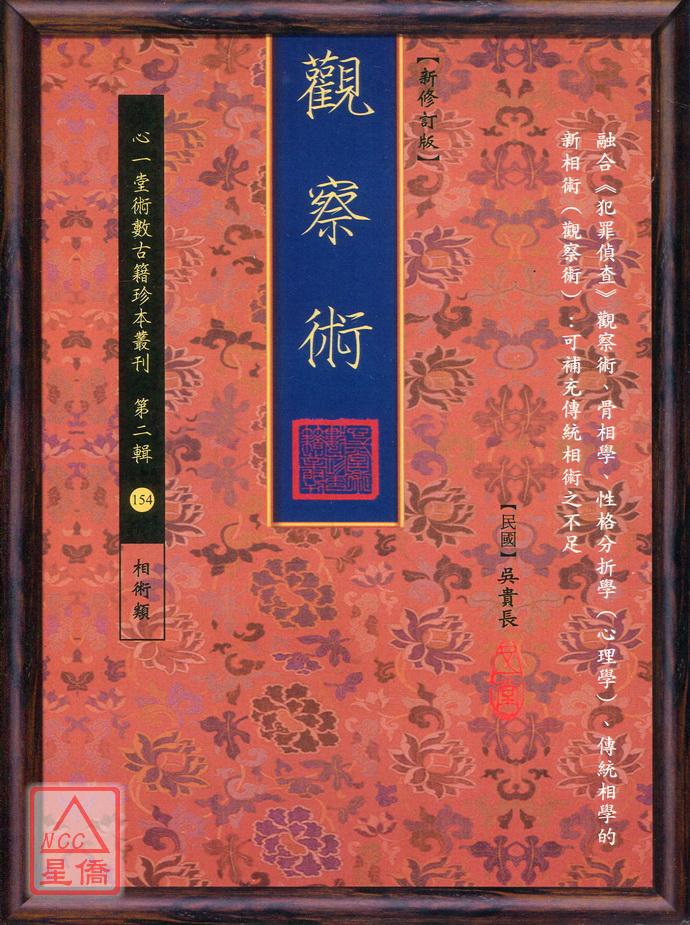 融合《犯罪偵查》觀察術、骨相學、性格分折學（心理學）、傳統相學的
新相術（觀察術）：可補充傳統相術之不足
【新修訂版】
【民國】吳貴長
觀察術
心一堂術數古籍珍本叢刊 第二輯
154
相術類
NCC
星僑